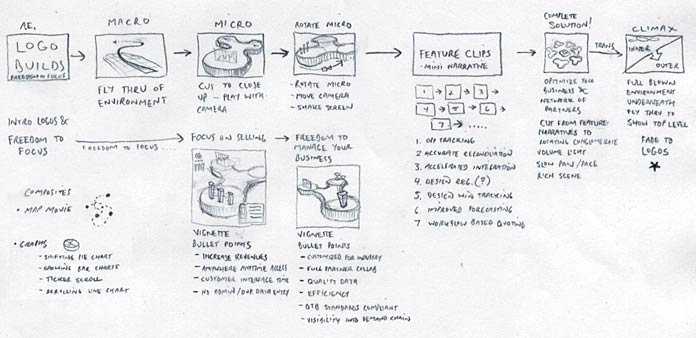 AE.
LOGO
BUILDS
FREEDOM TO FOCUS
MACRO
FLY THRU OF
ENVIRONMENT
MICRO
CUT TO CLOSE
UP - PLAY WITH
CAMERA
ROTATE MICRO
- ROTATE MICRO
- MOVE CAMERA
- SHAKE SCREEN
FEATURE CLIPS
- MINI NARRATIVE
1 2 3
4 5 6
7 ......
1. OPP TRACKING
2 ACCURATE RECONCILIATION
3 ACCELERATED INTEGRATION
4 DESIGN REG. (?)
5 DESIGN WIN TRACKING
6 IMPROVED FORECASTING
7 WORKFLOW BASED QUOTING
COMPLETE
SOLUTION!
OPTIMIZE YOUR
BUSINESS &
NETWORK OF
PARTNERS
CUT FROM FEATURE
NARRATIVES TO
ROTATING CONGLOMERATE
VOLUME LIGHT
SLOW PAN / PACE
RICH SCENE
TRANS.
CLIMAX
INNER
OUTER
FULL BLOWN
ENVIRONMENT
UNDERNEATH
FLY THRU TO
SHOW TOP LEVEL
FADE TO
LOGOS
INTRO LOGOS &
FREEDOM TO
FOCUS
FREEDOM TO FOCUS...
FOCUS ON SELLING
VIGNETTE
BULLET POINTS
- INCREASE REVENUES
- ANYWHERE ANYTIME ACCESS
- CUSTOMER INTERFACE TIME
- NO ADMIN/DUP DATA ENTRY
FREEDOM TO
MANAGE YOUR
BUSINESS
VIGNETTE
BULLET POINTS
- CUSTOMIZED FOR INDUSTRY
- FULL PARTNER COLLAB
- QUALITY DATA
- EFFICIENCY
- OTB STANDARDS COMPLIANT
- VISIBILITY INTO DEMAND CHAIN
COMPOSITES
• MAP MOVIE
• GRAPHS
- SHIFTING PIE CHART
- GROWING BAR CHARTS
- TICKER SCROLL
- SCROLLING LINE CHART